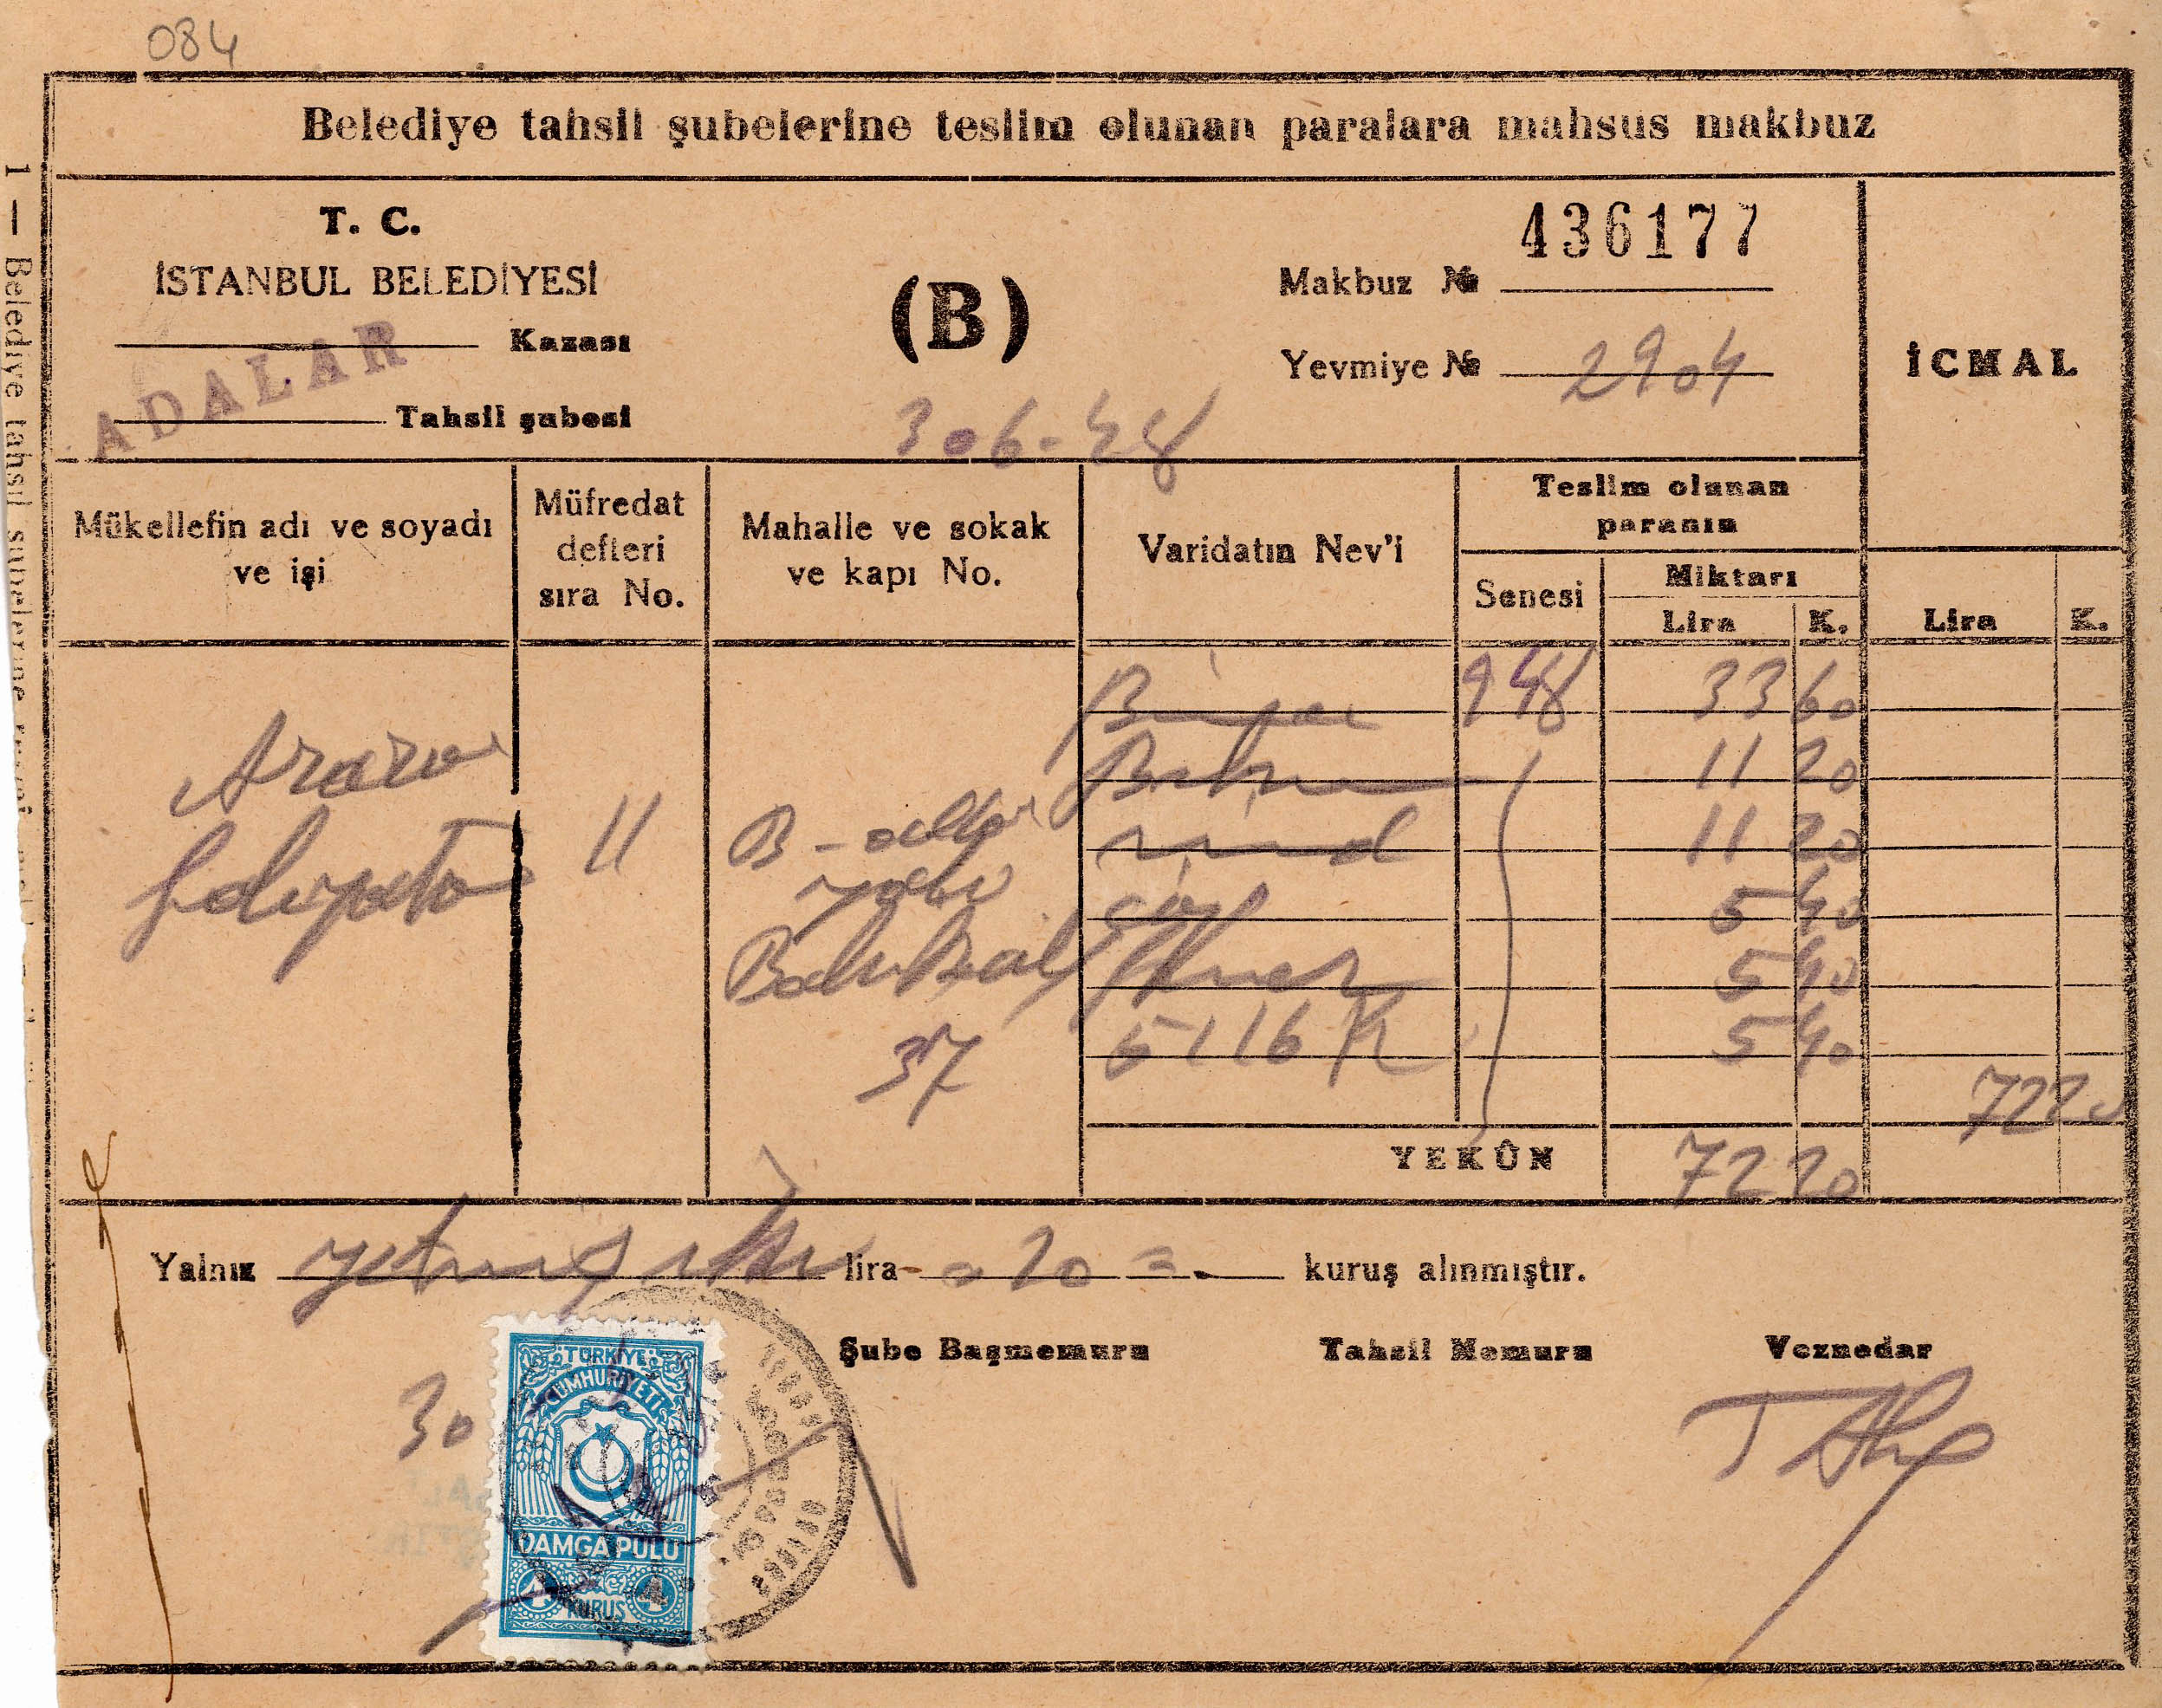 084
Belediye tahsil şubelerine teslim olunan paralara mahsus makbuz
T. C.
İSTANBUL BELEDİYESİ
Kazası
ADALAR
Tahsil şubesi
(B)
30 6-48
436177
Makbuz №
Yevmiye № 2904
İCMAL
Mükellefin adı ve soyadı
ve işi
Müfredat
defteri
sıra No.
Mahalle ve sokak
ve kapı No.
Varidatın Nev'i
Teslim olunan
paranın
Senesi
Miktarı
Lira K.
Lira K.
Bina 948 33 60
Buhran 11 20
11 20
5 40
5 40
5116 K 5 40
11
37
72 20
YEKÛN 72 20
Yalnız yetmiş iki lira 20 kuruş alınmıştır.
Şube Başmemuru Tahsil Memuru Veznedar
30
TÜRKİYE
CUMHURİYETİ
DAMGA PULU
4 KURUŞ 4
1 — Belediye tahsil şubelerine